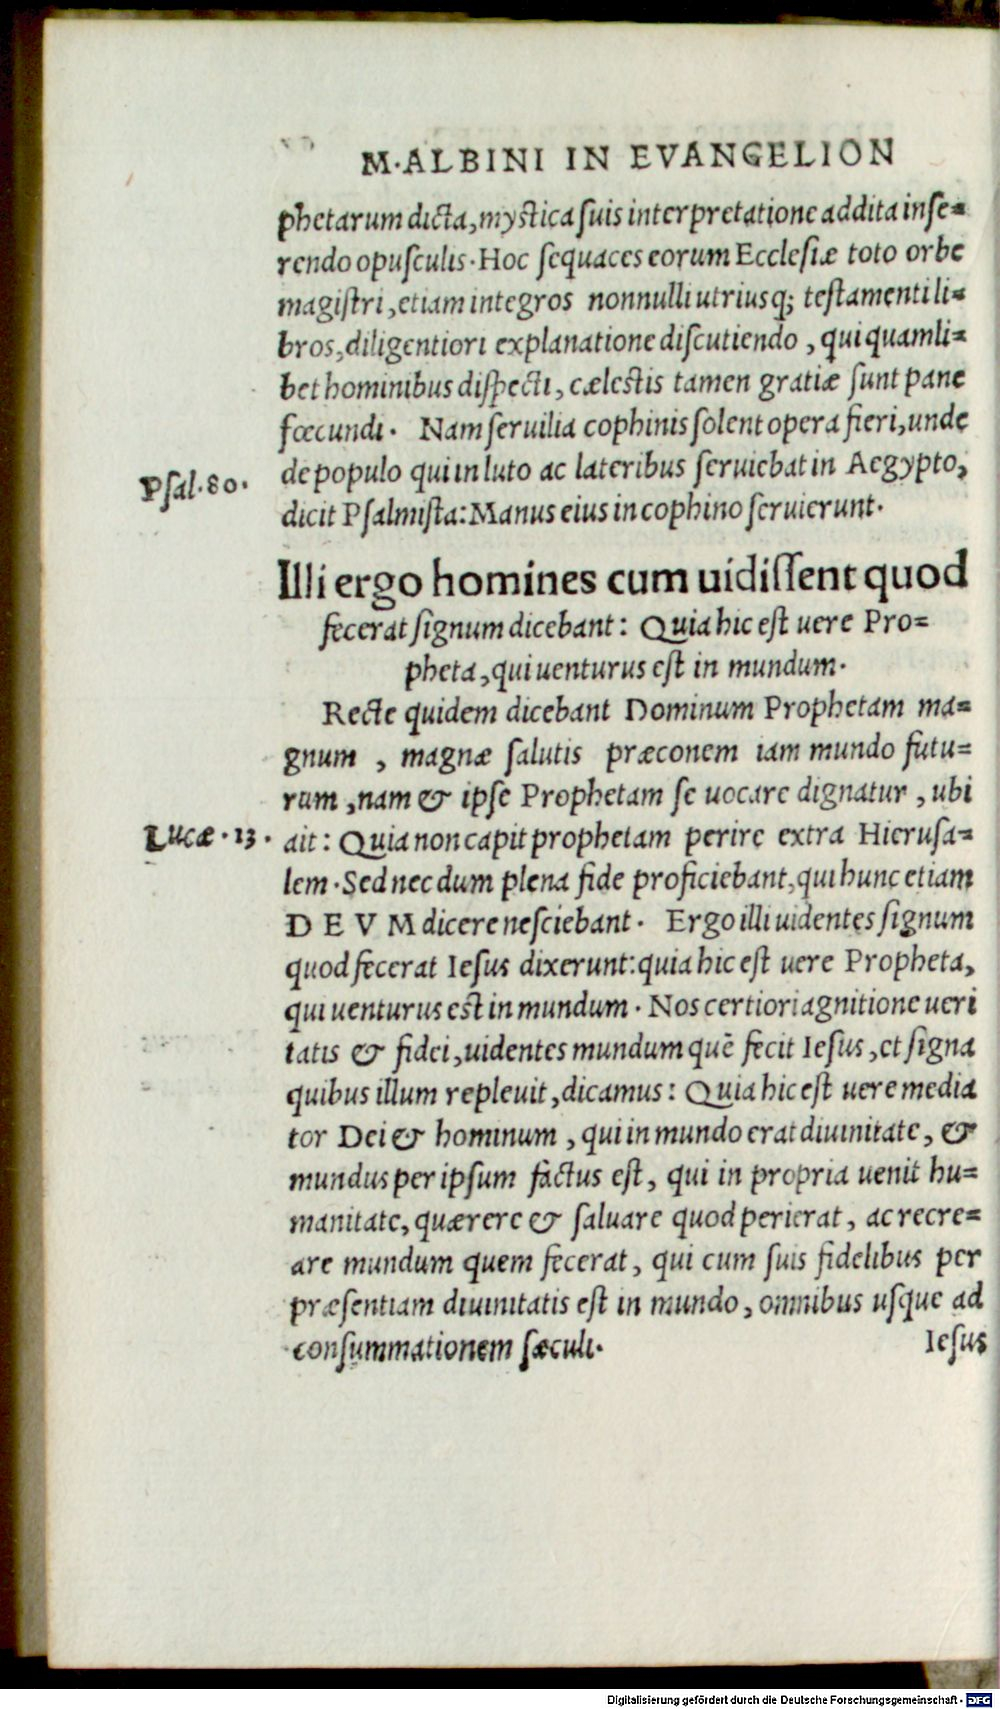 M·ALBINI IN EVANGELION
phetarum dicta, mystica suis interpretatione addita inse=
rendo opusculis. Hoc sequaces eorum Ecclesiæ toto orbe
magistri, etiam integros nonnulli utriusq; testamenti li=
bros, diligentiori explanatione discutiendo, qui quamli=
bet hominibus dispecti, cælestis tamen gratiæ sunt pane
fœcundi. Nam seruilia cophinis solent opera fieri, unde
de populo qui in luto ac lateribus seruiebat in Aegypto,
Psal.80.
dicit Psalmista: Manus eius in cophino seruierunt.
Illi ergo homines cum uidissent quod
fecerat signum dicebant: Quia hic est uere Pro=
pheta, qui uenturus est in mundum.
Recte quidem dicebant Dominum Prophetam ma=
gnum, magnæ salutis præconem iam mundo futu=
rum, nam & ipse Prophetam se uocare dignatur, ubi
Lucæ.13.
ait: Quia non capit prophetam perire extra Hierusa=
lem. Sed nec dum plena fide proficiebant, qui hunc etiam
DEVM dicere nesciebant. Ergo illi uidentes signum
quod fecerat Iesus dixerunt: quia hic est uere Propheta,
qui uenturus est in mundum. Nos certiori agnitione ueri
tatis & fidei, uidentes mundum quē fecit Iesus, et signa
quibus illum repleuit, dicamus: Quia hic est uere media
tor Dei & hominum, qui in mundo erat diuinitate, &
mundus per ipsum factus est, qui in propria uenit hu=
manitate, quærere & saluare quod perierat, ac recre=
are mundum quem fecerat, qui cum suis fidelibus per
præsentiam diuinitatis est in mundo, omnibus usque ad
consummationem sæculi.
Iesus
Digitalisierung gefördert durch die Deutsche Forschungsgemeinschaft - DFG